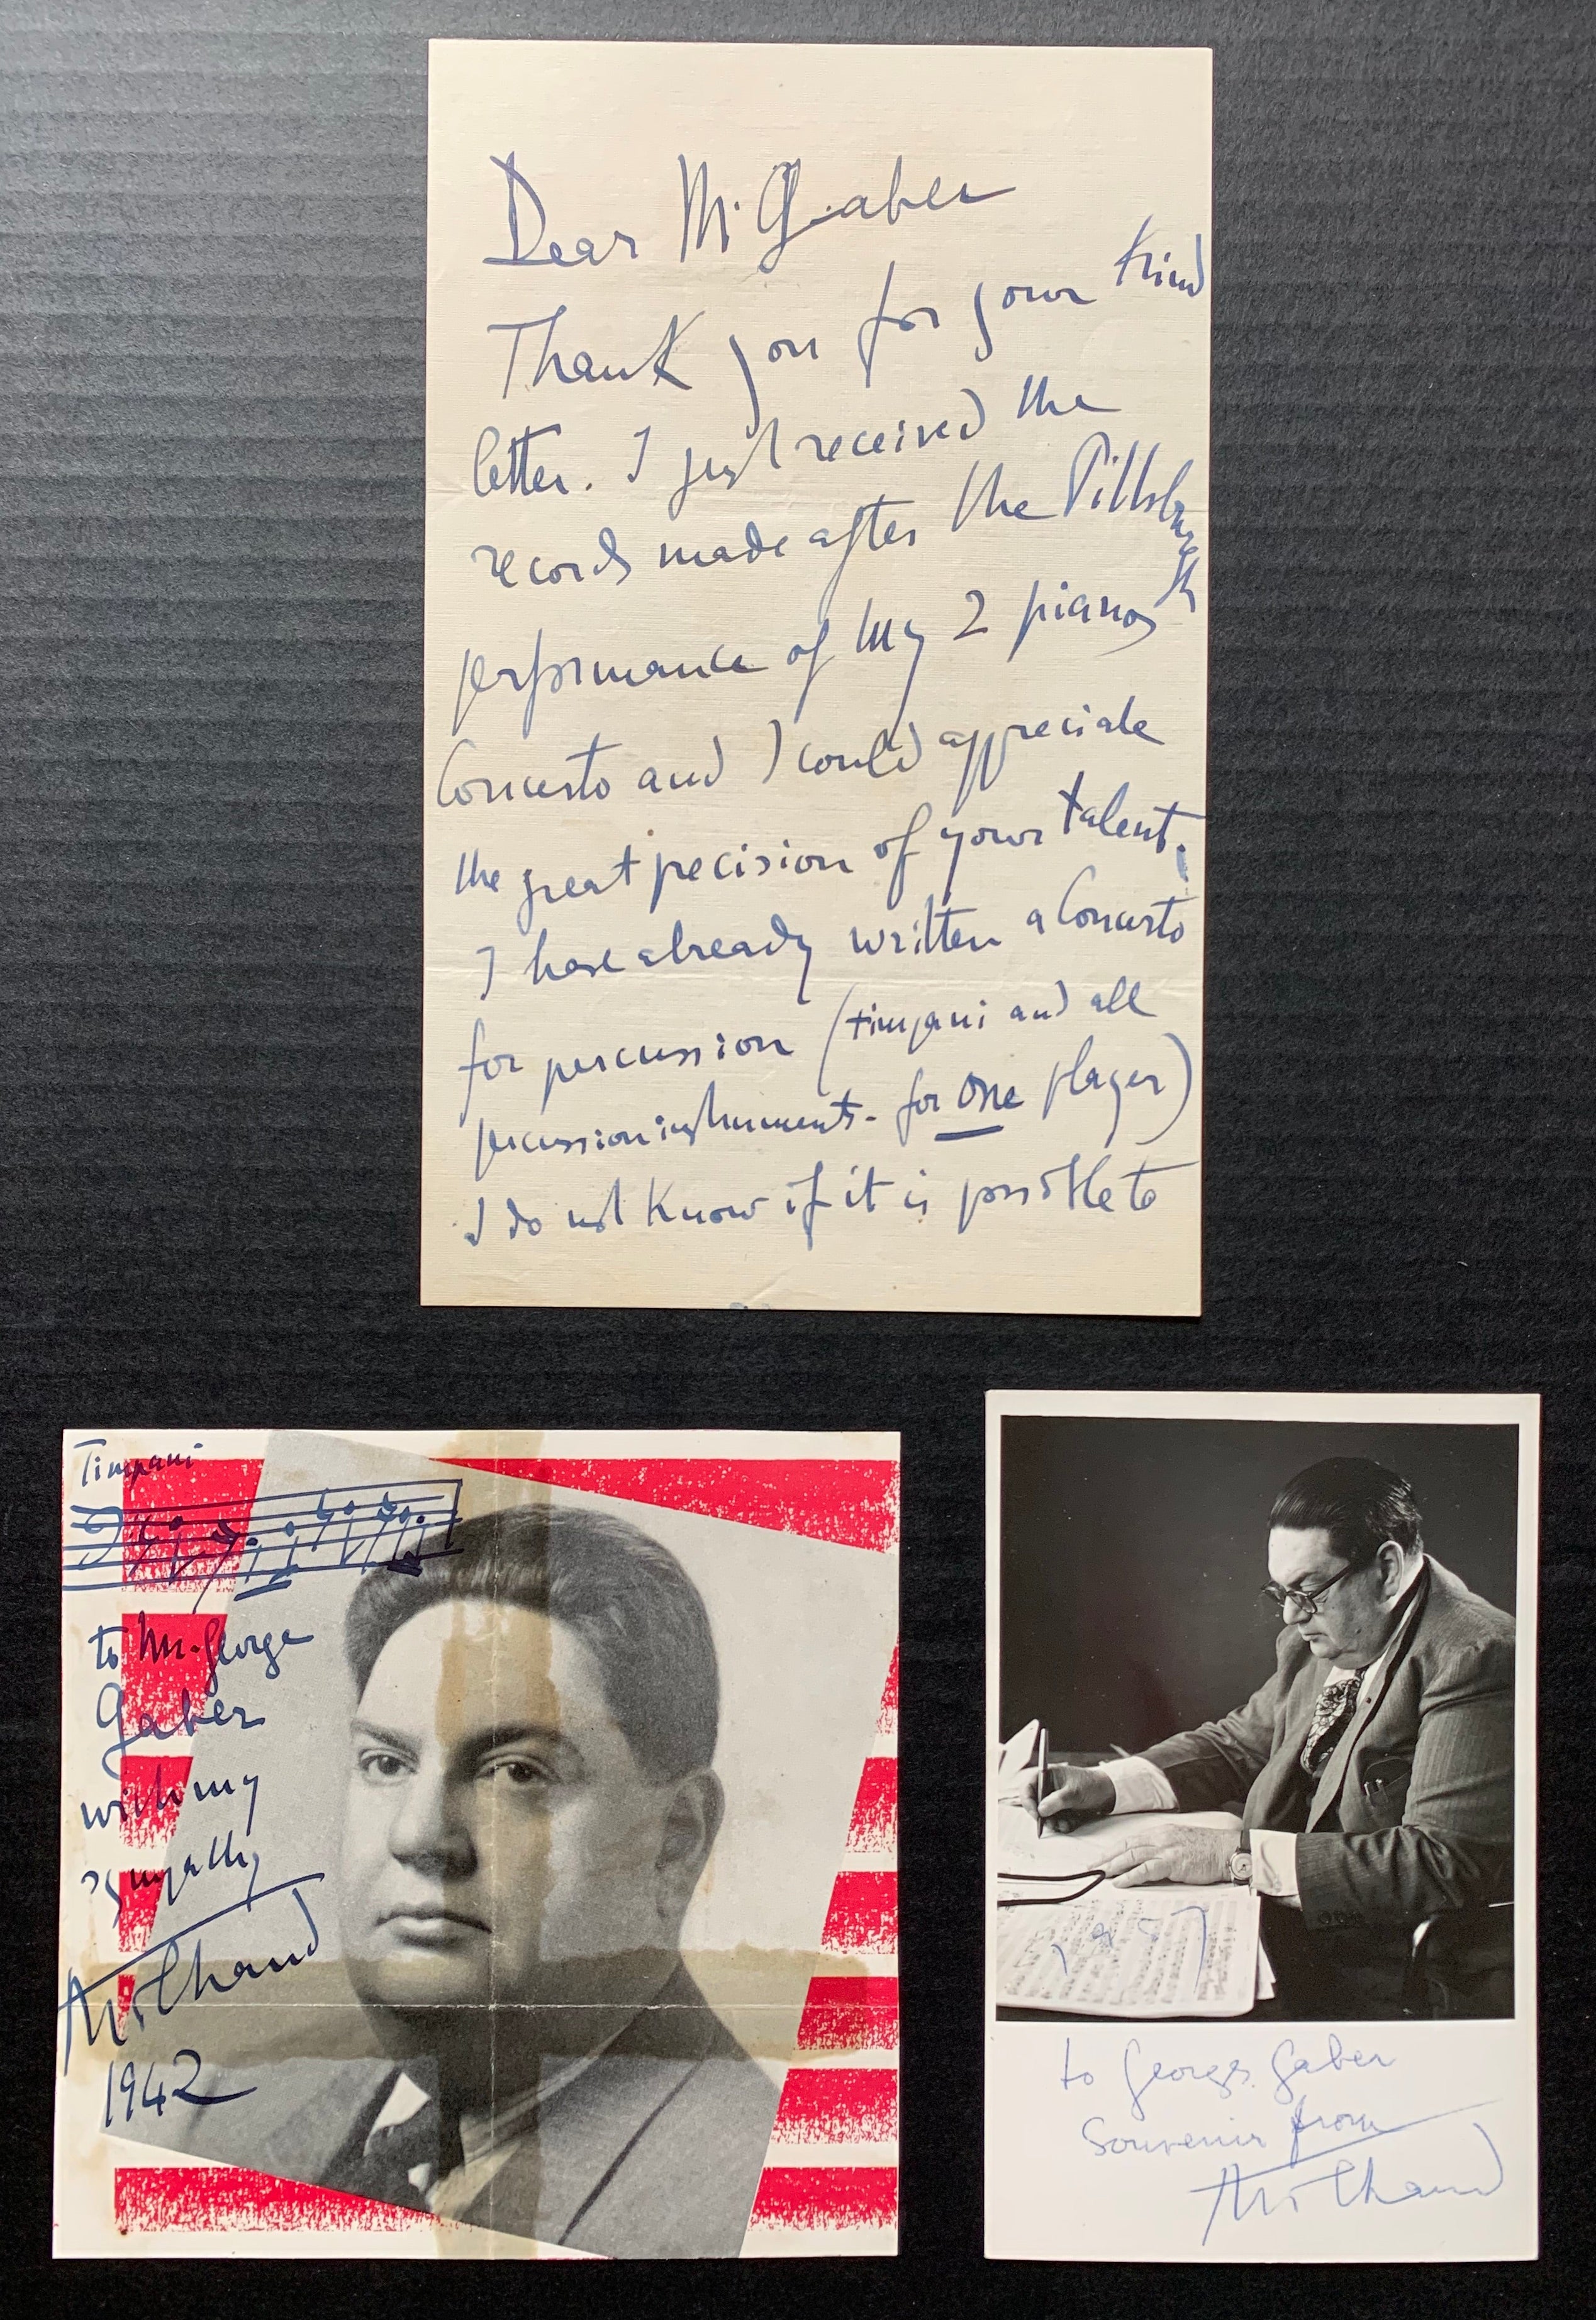 Dear Mr. Gaber
Thank you for your kind
letter. I just received the
records made after the Pittsburgth
performance of my 2 pianos
Concerto and I could appreciate
the great precision of your talent.
I have already written a Concerto
for percussion (timpani and all
percussion instruments - for one player)
I do not know if it is possible to
Timpani
to Mr. George
Gaber
with my
sympathy
Milhaud
1942
1957
to Georges Gaber
Souvenir from
Milhaud